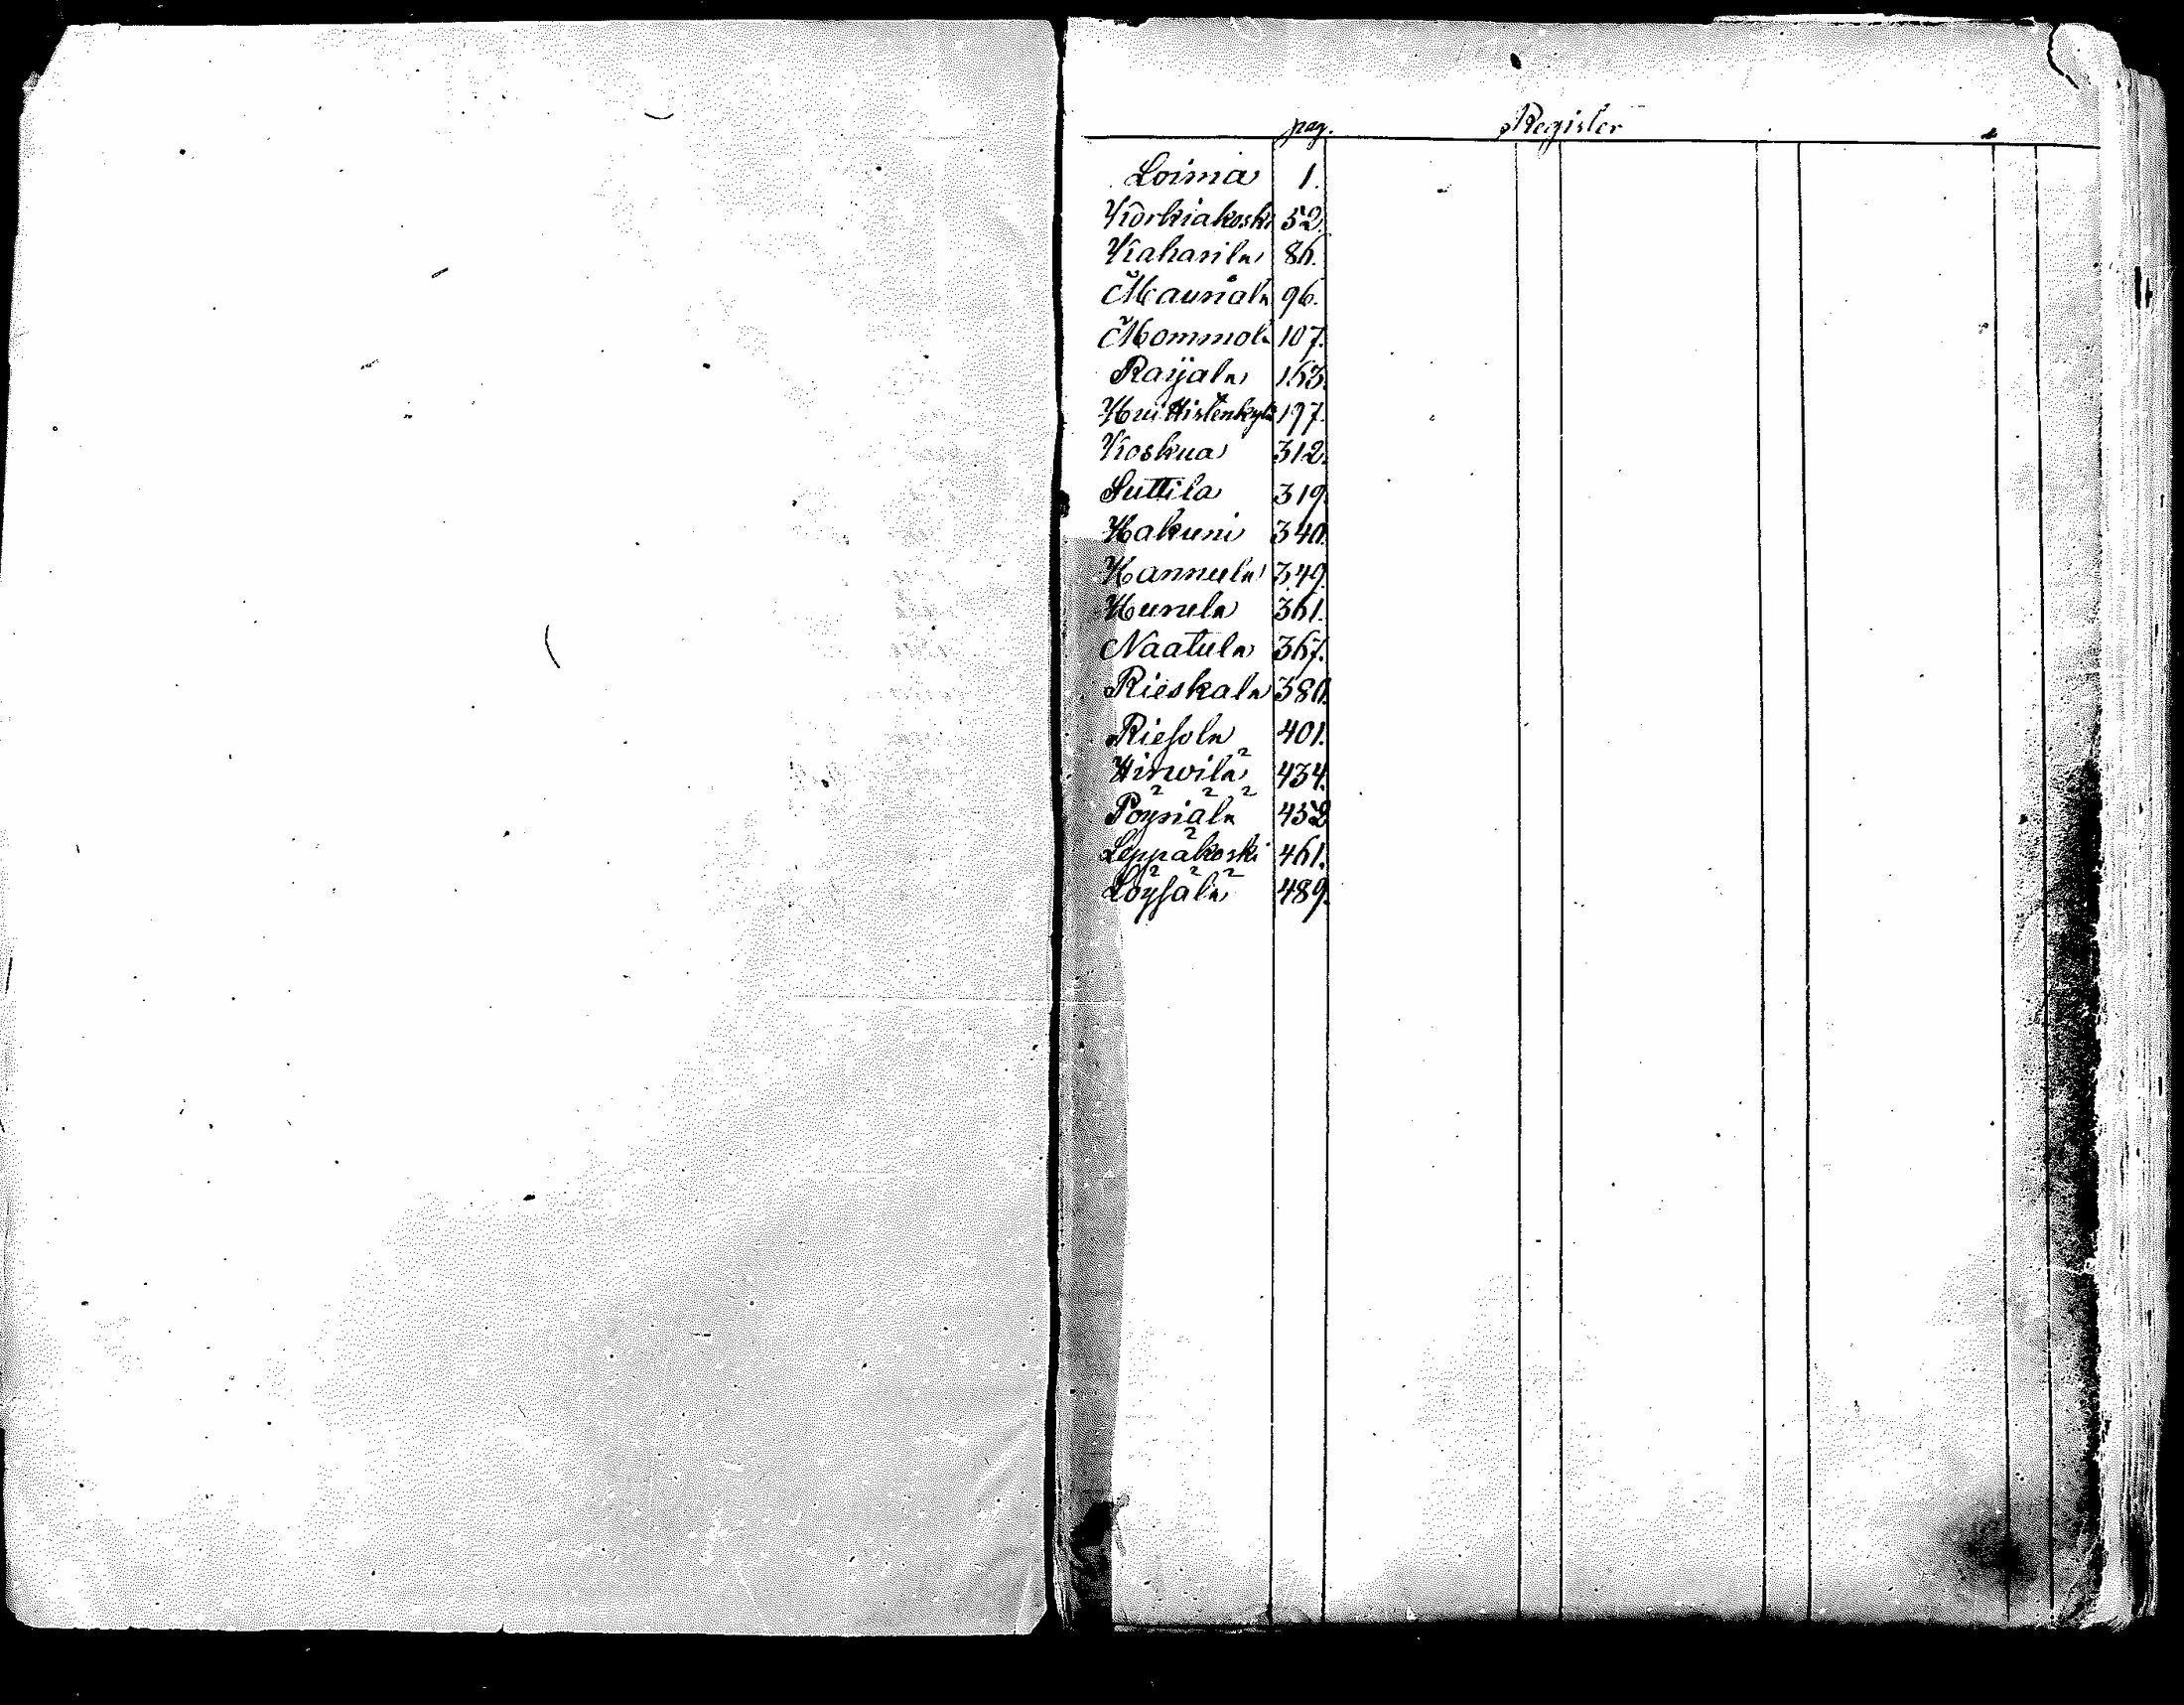 pag. Register
Loima 1.
Korkiakoski 52.
Kaharila 86.
Mauriala 96.
Mommola 107.
Raijala 163.
Huittistenkylä 197.
Koskua 312.
Suttila 319.
Hakuni 340.
Hannula 349.
Hurula 361.
Naatula 367.
Rieskala 380.
Riesola 401.
Hirwilä 434.
Pöyriälä 452
Leppäkoski 461.
Löysälä 489.